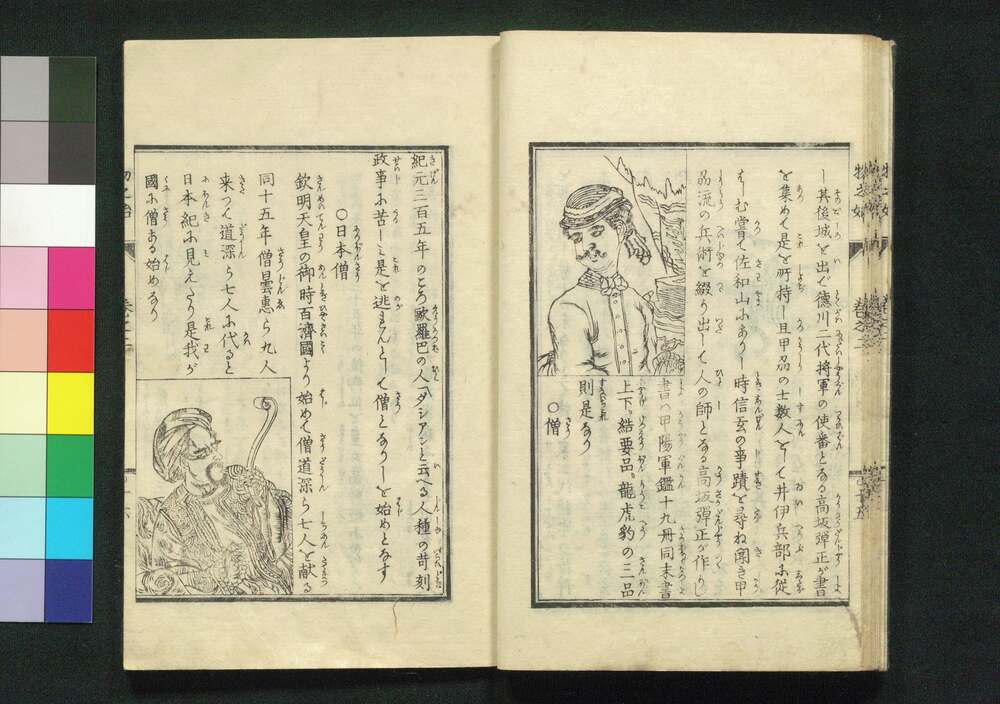 其後城を出て德川二代将軍の使番となる高坂弾正が書
を集めて是を所持し且甲刕の士数人として井伊兵部に従
はしむ嘗て佐和山にありし時信玄の事蹟を尋ね聞き甲
刕流の兵術を綴り出して人の師となる高坂弾正が作りし
書ハ甲陽軍鑑十九冊同末書
上下。結要品。龍虎豹の三品
則是なり
○僧
紀元三百五年のころ歐羅巴の人「ダシアン」と云へる人種の苛刻
政事に苦しミ是を逃れんとして僧となりしを始めとなす
○日本僧
欽明天皇の御時百濟國より始めて僧道深ら七人を献る
同十五年僧曇惠ら九人
来つて道深ら七人に代ると
日本紀に見えたり是我が
國に僧ある始めなり